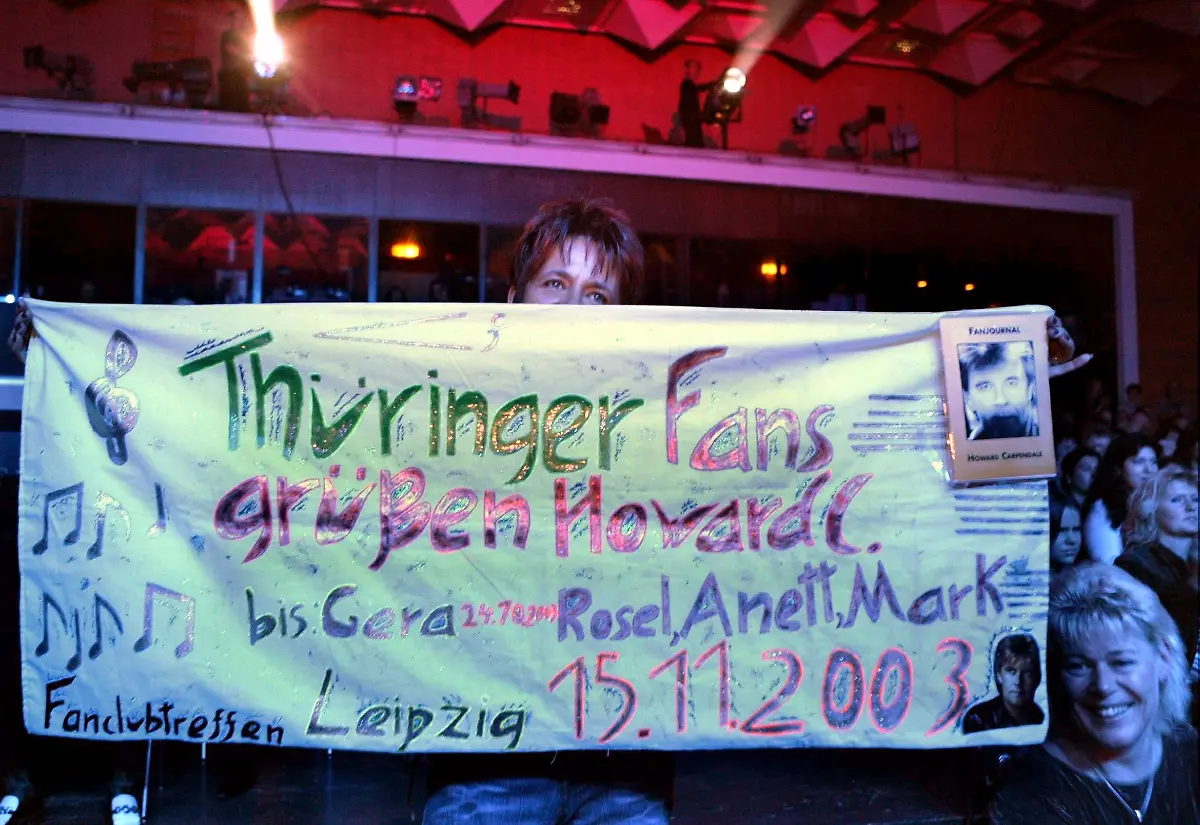 Thüringer Fans
FANJOURNAL
HOWARD CARPENDALE
grüßen Howard C.
bis: Gera 24.10.2003 Rosel, Anett, Mark
Fanclubtreffen Leipzig 15.11.2003